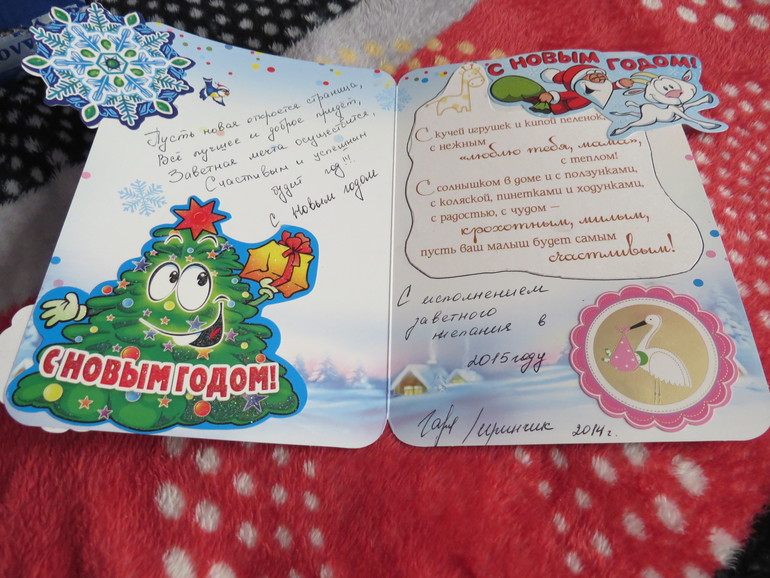 Пусть новая откроется страница,
Всё лучшее и доброе придёт,
Заветная мечта осуществится,
Счастливым и успешним
будит год!!!
С новым годом
С НОВЫМ ГОДОМ!
С НОВЫМ ГОДОМ!
С кучей игрушек и кипой пеленок,
с нежным
«люблю тебя, мама»,
с теплом!
С солнышком в доме и с ползунками,
с коляской, пинетками и ходунками,
с радостью, с чудом –
крохотным, милым,
пусть ваш малыш будет самым
счастливым!
С исполнением
заветного
желания в
2015 году
2014 г.